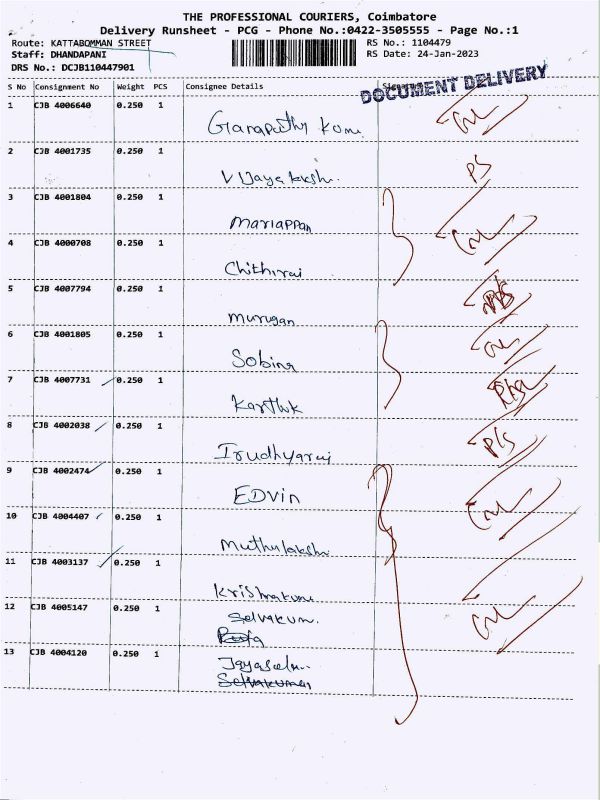 THE PROFESSIONAL COURIERS, Coimbatore
Delivery Runsheet - PCG - Phone No.:0422-3505555 - Page No.:1
Route: KATTABOMMAN STREET
Staff: DHANDAPANI
DRS No.: DCJB110447901
RS No.: 1104479
RS Date: 24-Jan-2023
DOCUMENT DELIVERY
S No Consignment No Weight PCS Consignee Details
1 CJB 4006640 0.250 1
Ganapathy Kum
2 CJB 4001735 0.250 1
Vijayalakshi
3 CJB 4001804 0.250 1
Mariappan
4 CJB 4000708 0.250 1
Chithirai
5 CJB 4007794 0.250 1
Murugan
6 CJB 4001805 0.250 1
Sobina
7 CJB 4007731 0.250 1
Karthik
8 CJB 4002038 0.250 1
Irudhyaraj
9 CJB 4002474 0.250 1
EDVin
10 CJB 4004407 0.250 1
Muthulakshi
11 CJB 4003137 0.250 1
Krishnakum
12 CJB 4005147 0.250 1
Selvakum.
13 CJB 4004120 0.250 1
Selvakumar